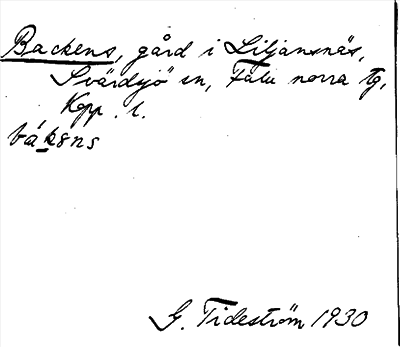 Backens, gård i Liljansnäs,
Svärdsjö sn, Falu norra tg,
Kopp. l.
bákens
G. Tideström 1930